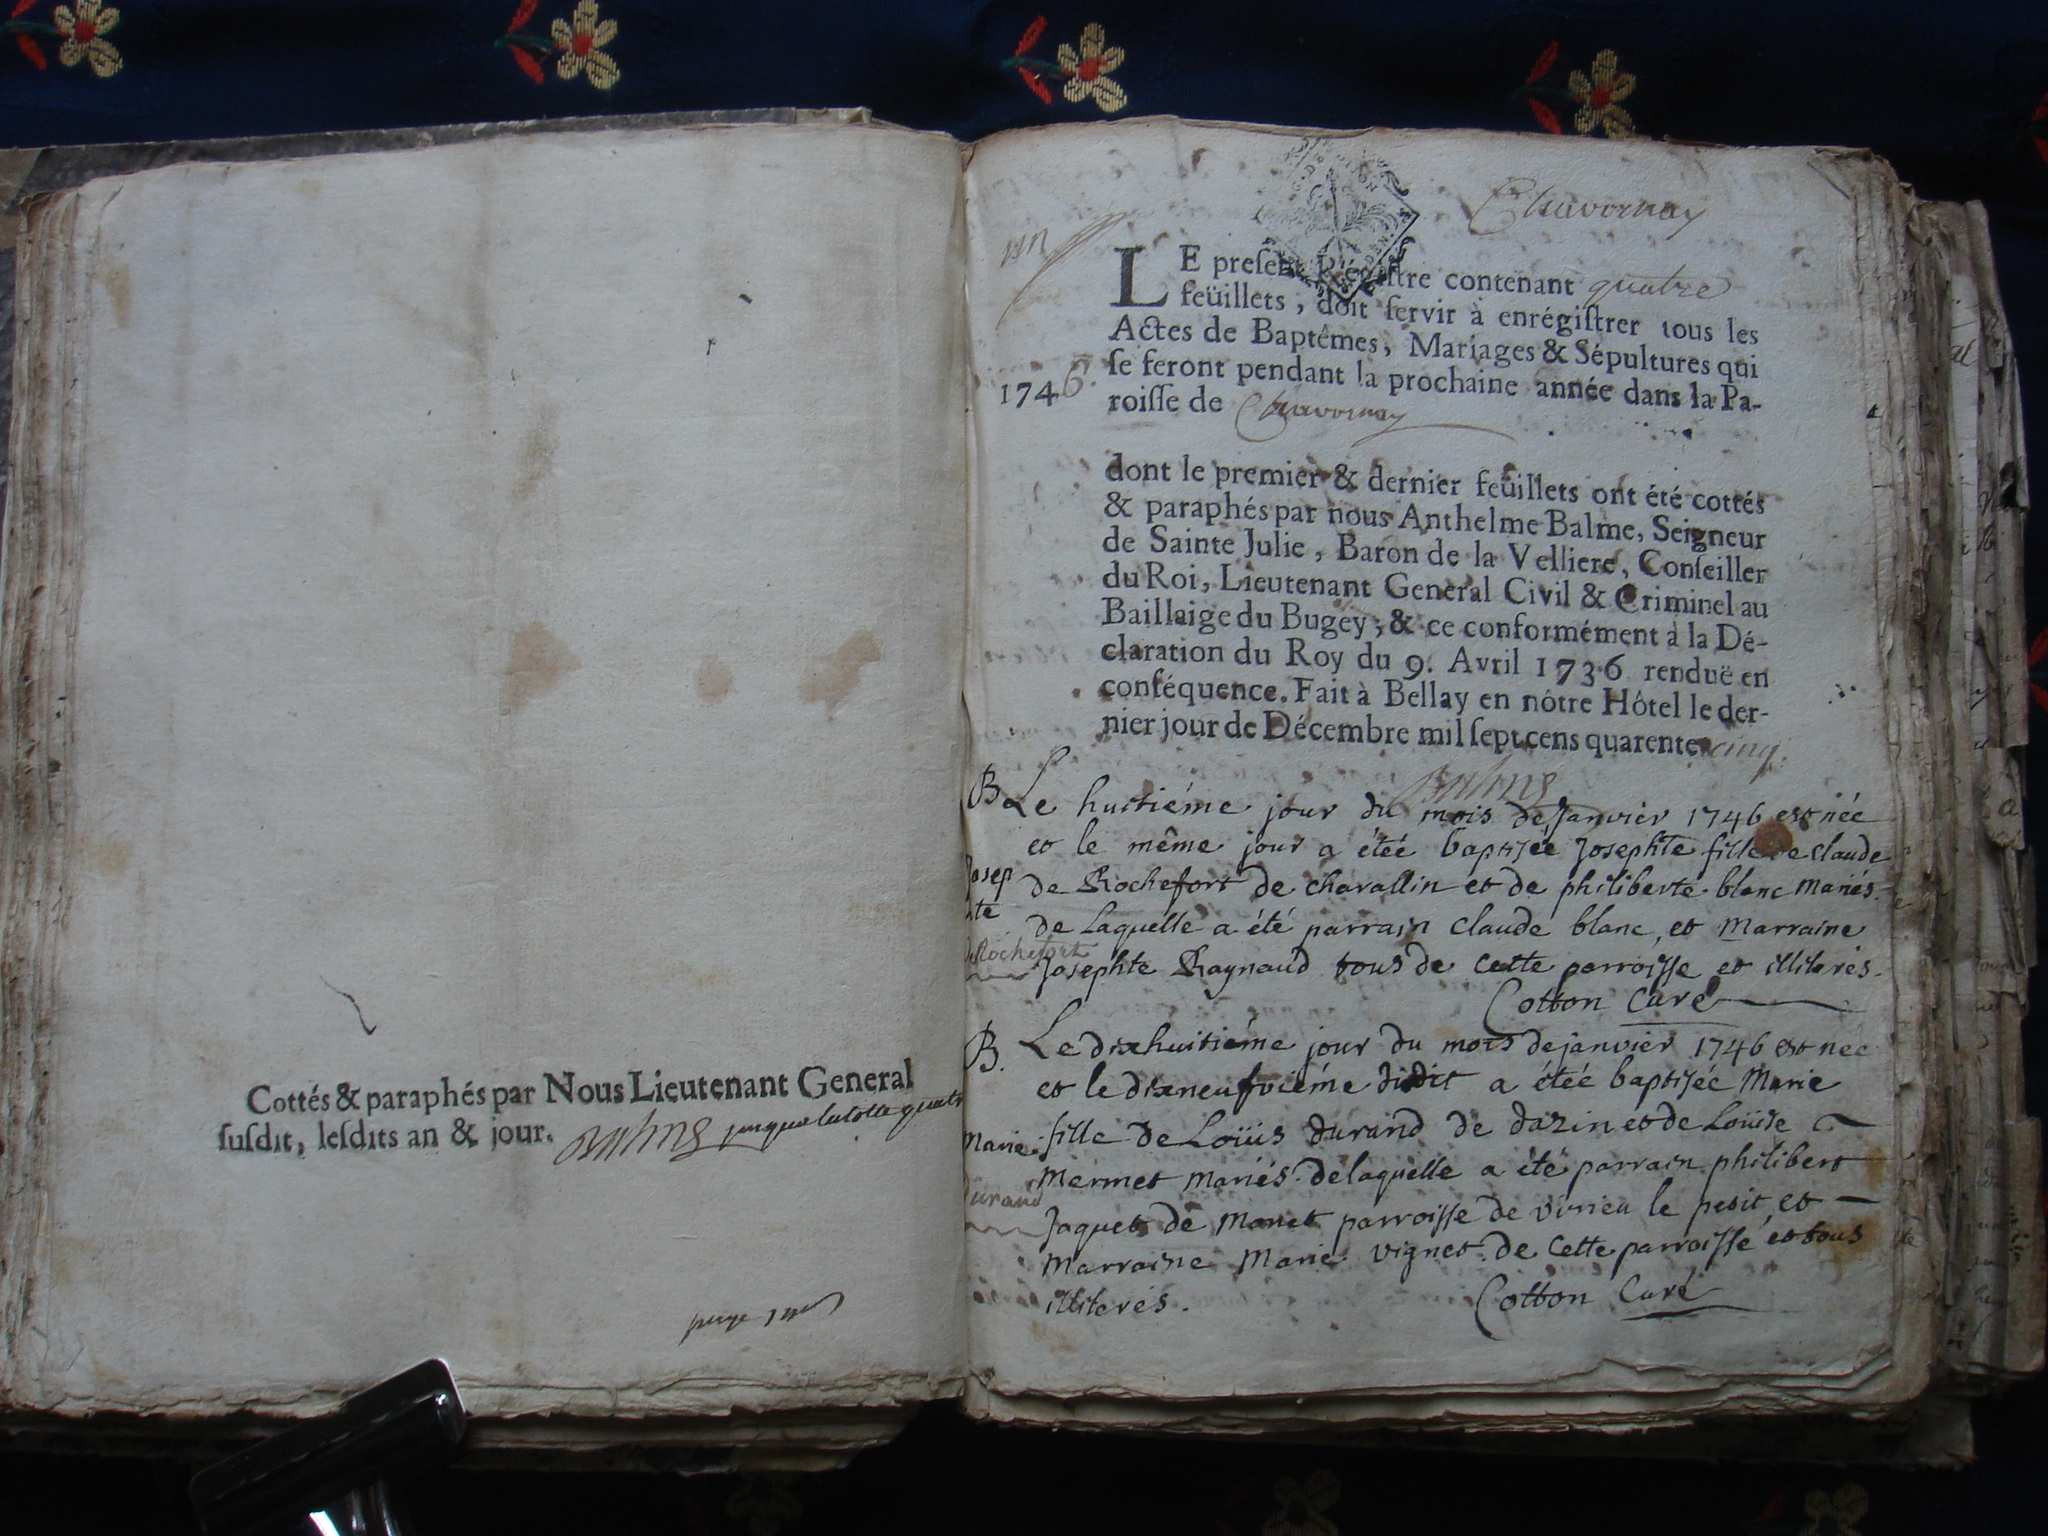 Cottés & paraphés par Nous Lieutenant General
ſuſdit, leſdits an & jour. Balme
Chavornay
LE preſent Régiſtre contenant quatre
feüillets, doit ſervir à enrégiſtrer tous les
Actes de Baptêmes, Mariages & Sépultures qui
ſe feront pendant la prochaine année dans la Pa-
1746.
roiſſe de Chavornay
dont le premier & dernier feüillets ont été cottés
& paraphés par nous Anthelme Balme, Seigneur
de Sainte Julie, Baron de la Velliere, Conſeiller
du Roi, Lieutenant General Civil & Criminel au
Baillaige du Bugey; & ce conformément à la Dé-
claration du Roy du 9. Avril 1736 renduë en
conſéquence. Fait à Bellay en nôtre Hôtel le der-
nier jour de Décembre mil ſept cens quarente cinq.
Balme
B Le huitiéme jour du mois de Janvier 1746 est née
et le même jour a étée baptisée Josephte fille de claude
Josep
te
de Rochefort
de Rochefort de charallin et de philiberte blanc Mariés.
de Laquelle a été parrain Claude blanc, et Marraine
Josephte Raynaud tous de cette parroisse et illiterés.
Cotton Curé
B. Le dixhuitiéme jour du mois de janvier 1746 est née
et le dixneufviéme dudit a étée baptisée Marie
Marie
Durand
fille de Loüis durand de dazin et de Loüise
Mermet Mariés. de laquelle a été parrain philibert
Jaquet de Monet parroisse de virieu le petit, et
Marraine Marie vignet de cette parroisse et tous
illiterés. Cotton Curé